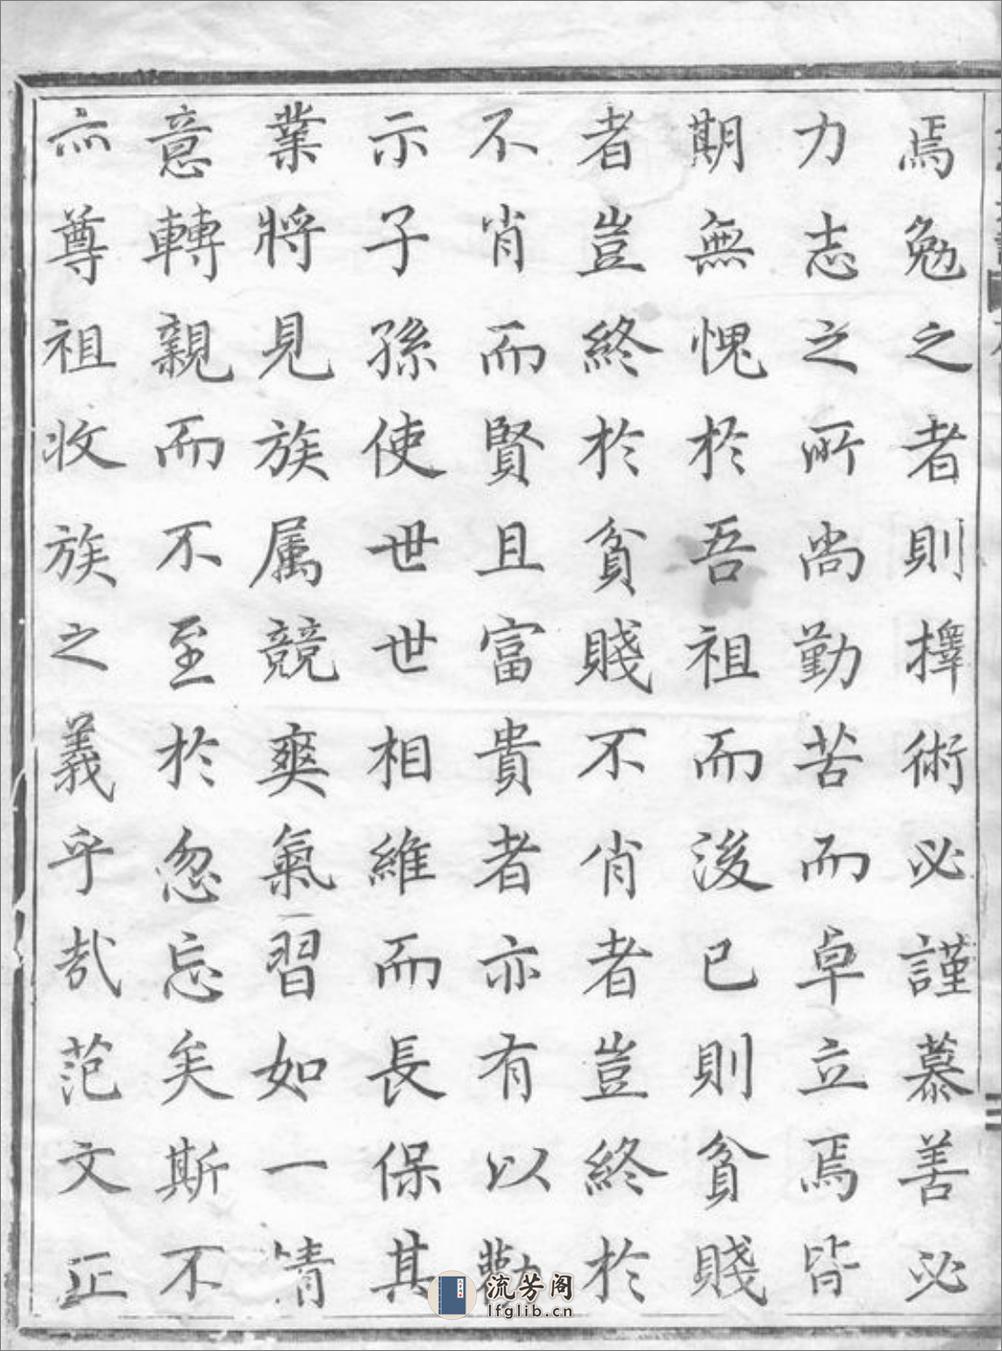 焉勉之者則擇術必謹慕善必
力志之所尚勤苦而卓立焉皆
期無愧於吾祖而後已則貧賤
者豈終於貧賤不肖者豈終於
不肖而賢且富貴者亦有以勸
示子孫使世世相維而長保其
業將見族属競爽氣習如一情
意轉親而不至於忽忘矣斯不
亦尊祖收族之義乎哉范文正
流芳阁
lfglib.cn